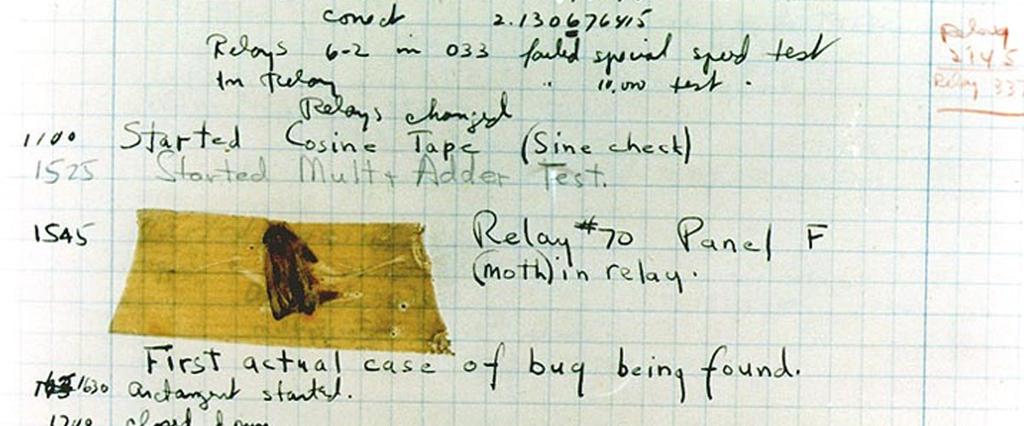 conect 2.130676415
Relays 6-2 in 033 failed special speed test
In Relay " 10.000 test .
Relays changed
Relay
2145
Relay 337
1100 Started Cosine Tape (Sine check)
1525 Started Mult + Adder Test.
1545 Relay #70 Panel F
(moth) in relay.
First actual case of bug being found.
1630 arctangent started.
closed down